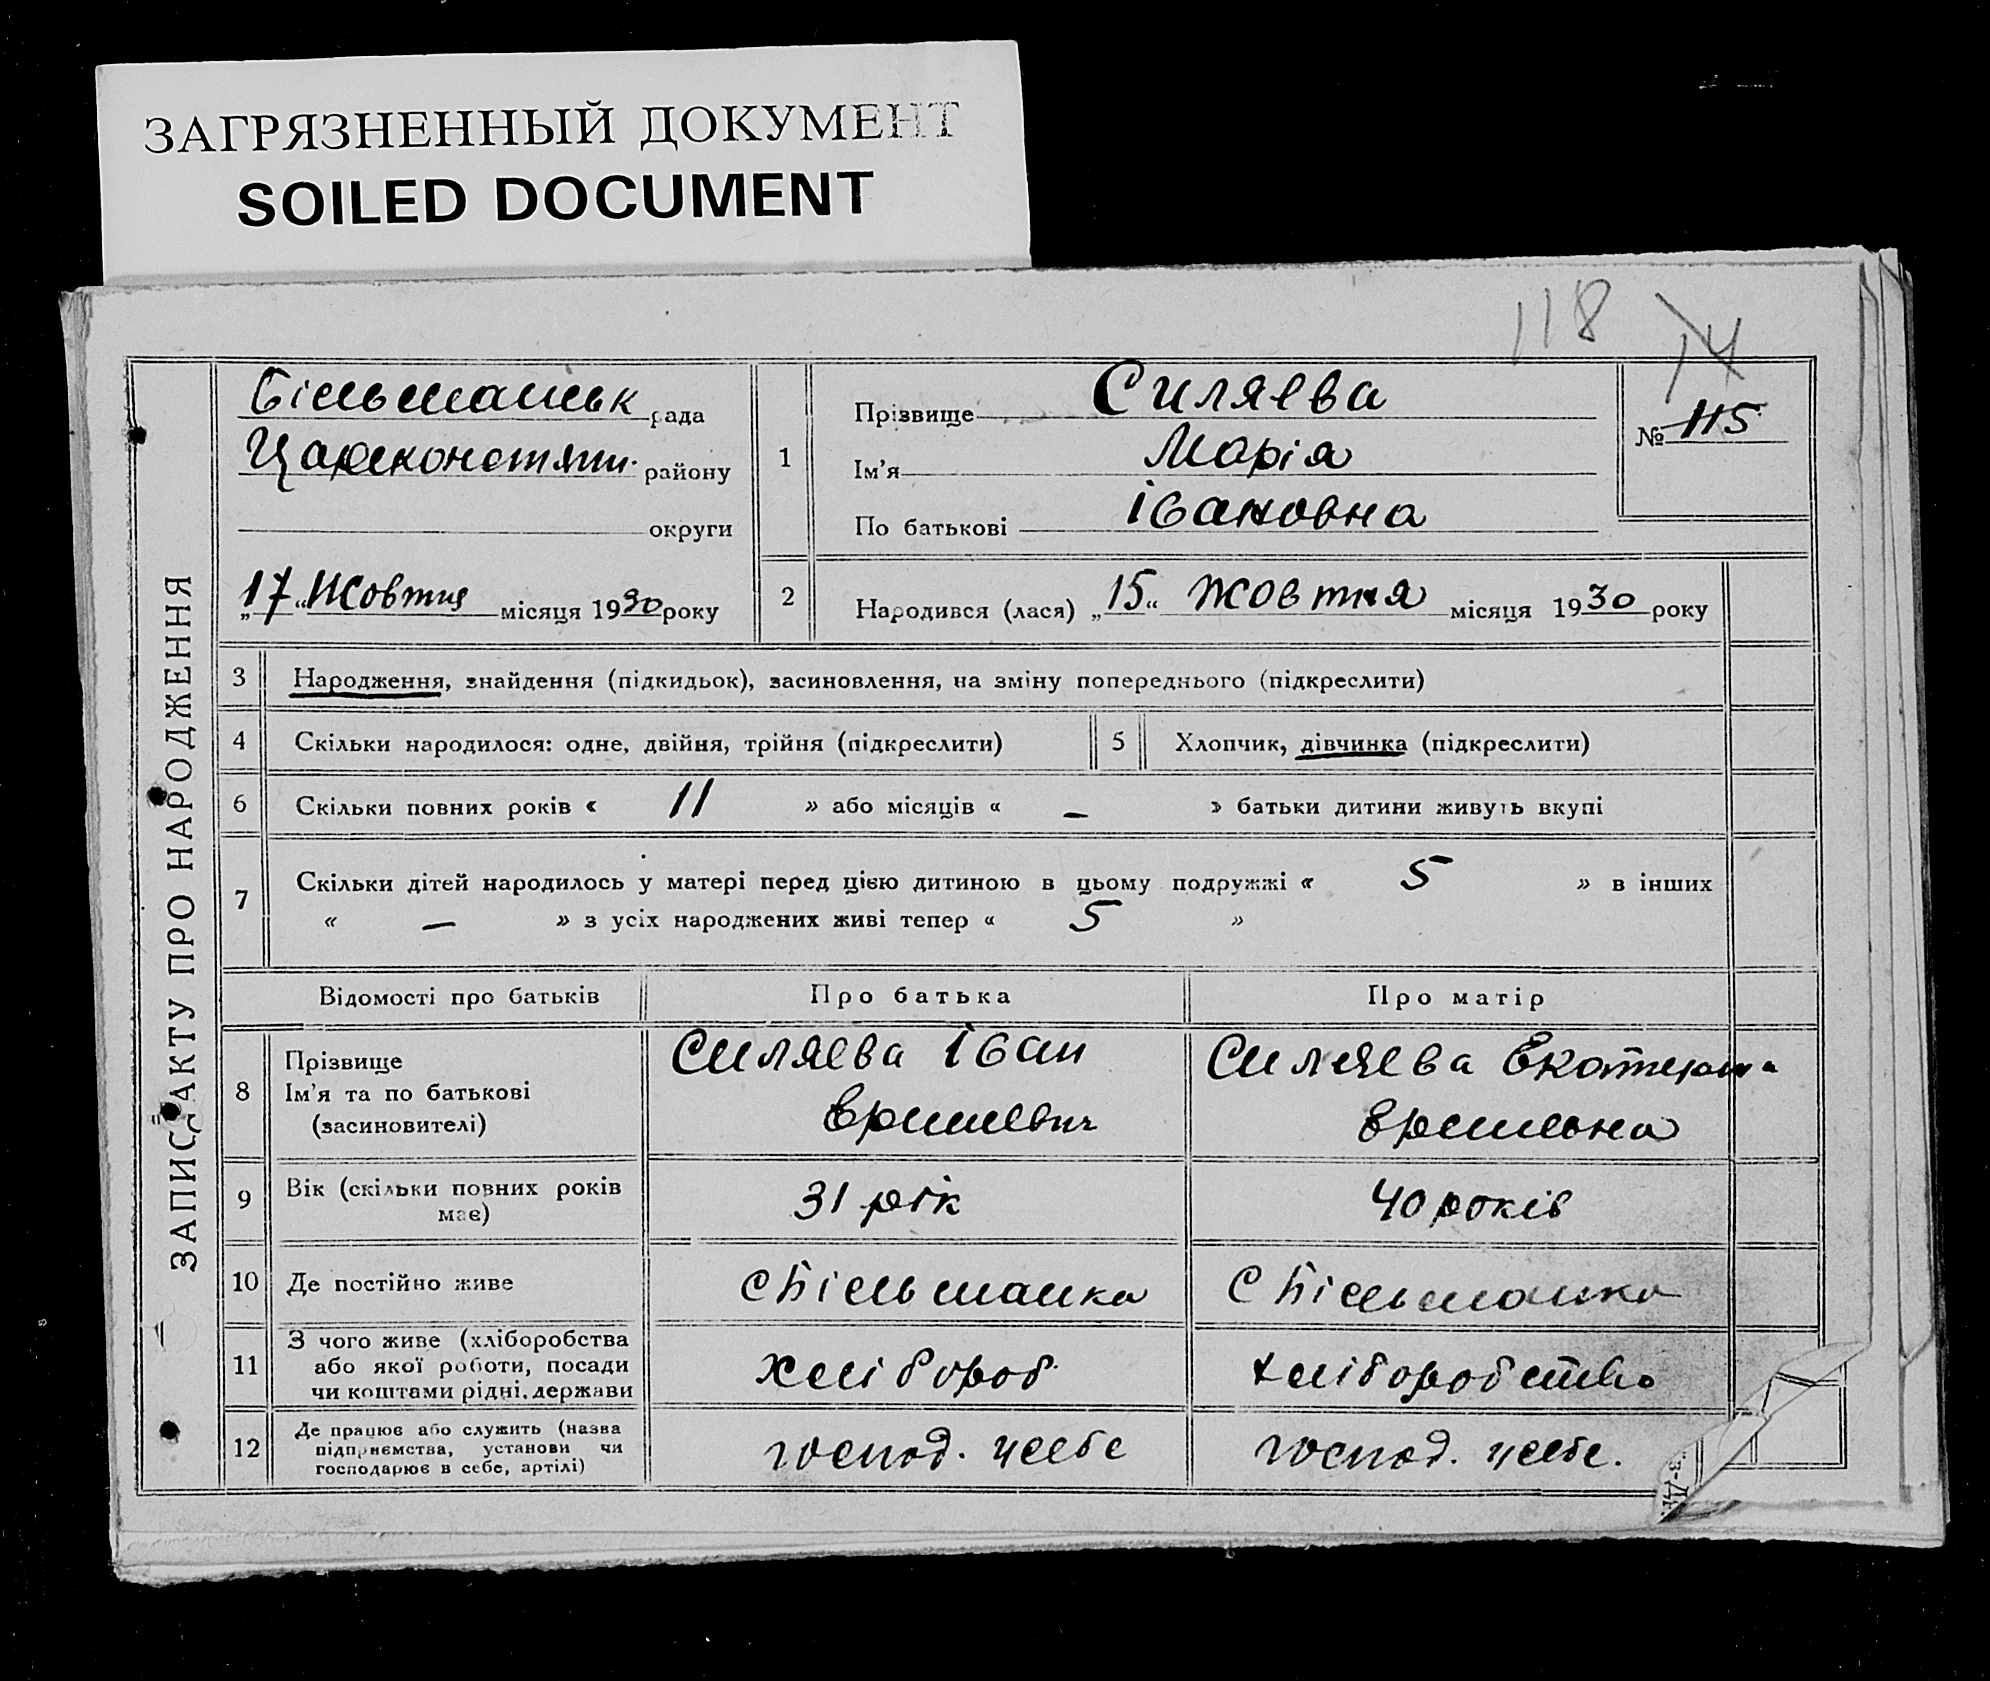 ЗАГРЯЗНЕННЫЙ ДОКУМЕНТ
SOILED DOCUMENT
118 14
ЗАПИС АКТУ ПРО НАРОДЖЕННЯ
Більшанськ рада
району
округи
„17“ Жовтня місяця 1930 року
1
Прізвище Силяєва
Ім'я Марія
По батькові Івановна
№ 115
2 Народився (лася) „15“ жовтня місяця 1930 року
3 Народження, знайдення (підкидьок), засиновлення, на зміну попереднього (підкреслити)
4 Скільки народилося: одне, двійня, трійня (підкреслити) 5 Хлопчик, дівчинка (підкреслити)
6 Скільки повних років « 11 » або місяців « — » батьки дитини живуть вкупі
7 Скільки дітей народилось у матері перед цією дитиною в цьому подружжі « 5 » в інших
« — » з усіх народжених живі тепер « 5 »
Відомості про батьків Про батька Про матір
8 Прізвище
Ім'я та по батькові
(засиновителі)
Силяєва Іван
Силяєва Екатерина
9 Вік (скільки повних років
має)
31 рік 40 років
10 Де постійно живе с Більшанка с Більшанка
11 З чого живе (хліборобства
або якої роботи, посади
чи коштами рідні, держави
хлібороб хліборобство
12 Де працює або служить (назва
підприємства, установи чи
господарює в себе, артілі)
господ. у себе господ. у себе.